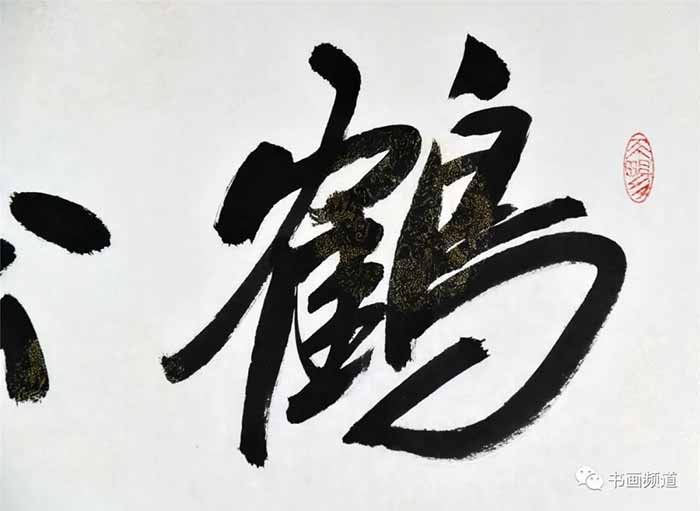 鹤
书画频道